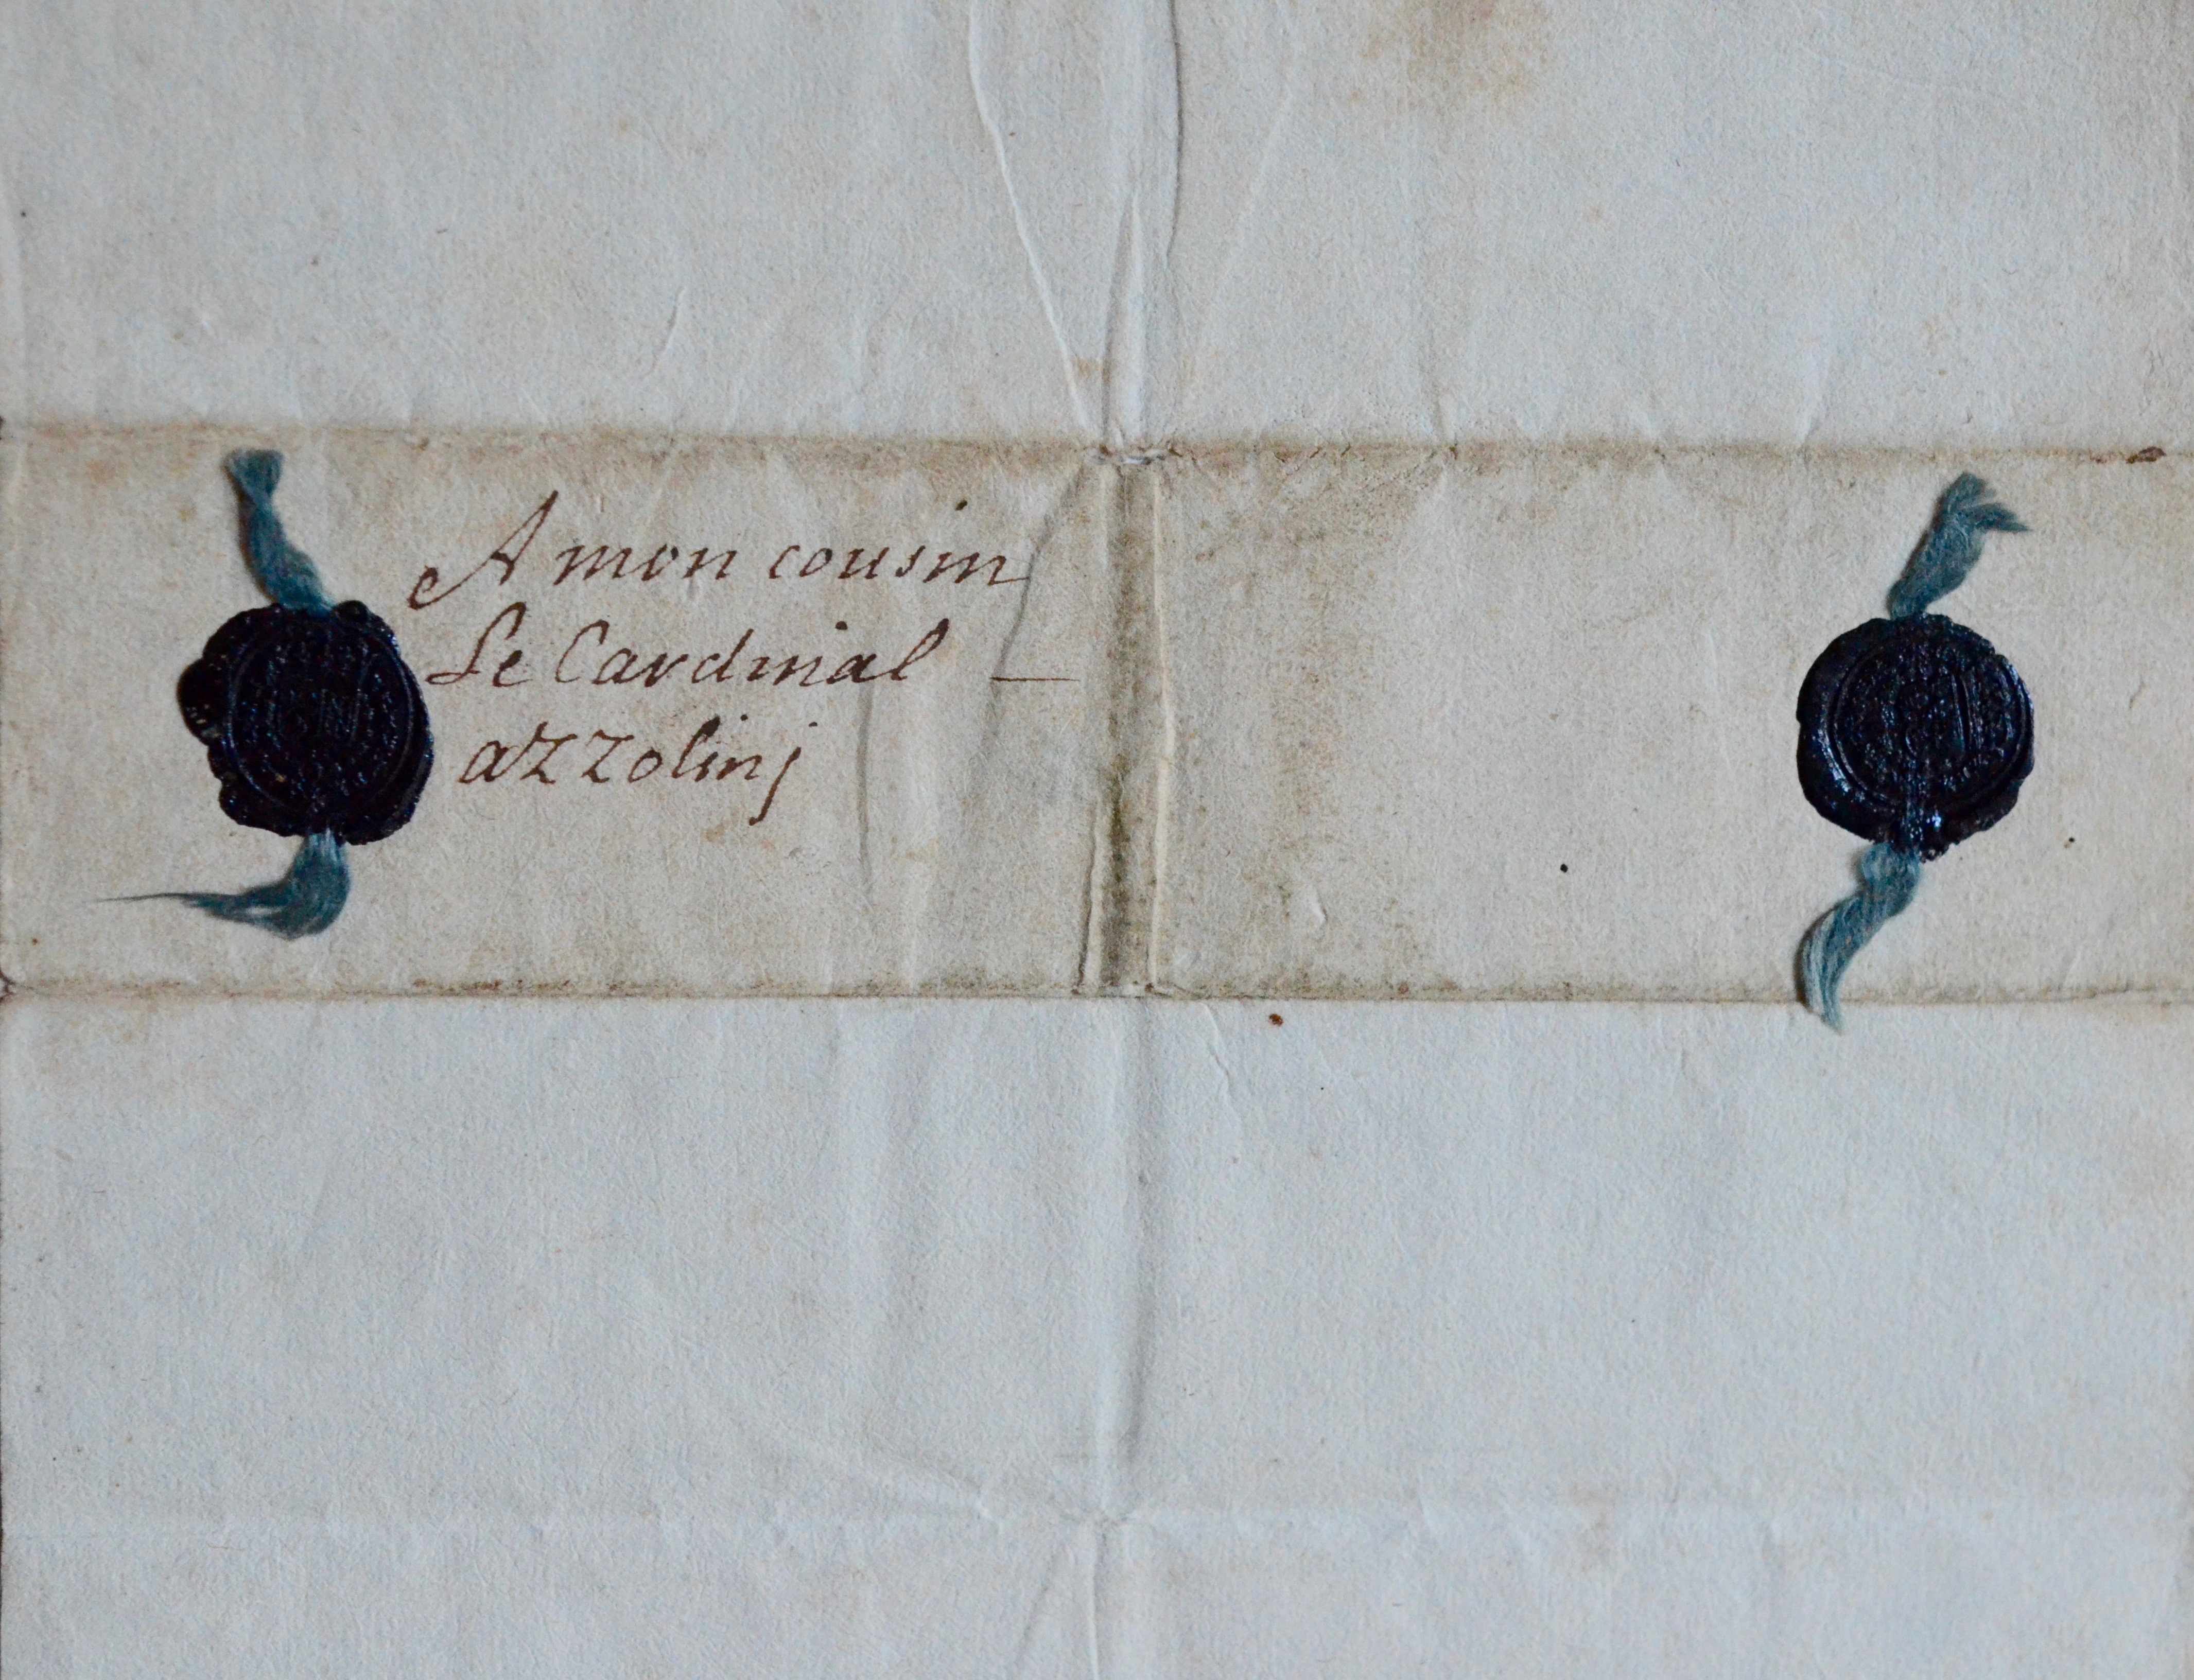 A mon cousin
Le Cardinal
azzolinj